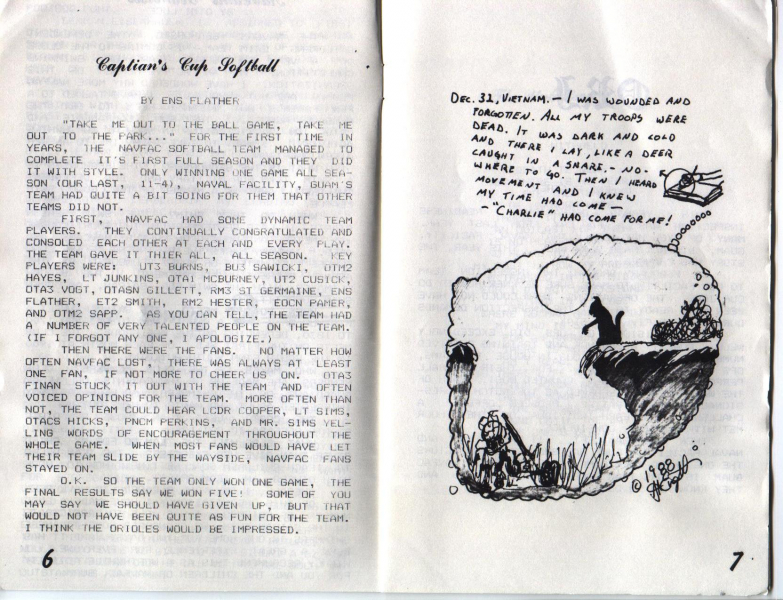 Captian's Cup Softball
BY ENS FLATHER
"TAKE ME OUT TO THE BALL GAME, TAKE ME
OUT TO THE PARK..." FOR THE FIRST TIME IN
YEARS, THE NAVFAC SOFTBALL TEAM MANAGED TO
COMPLETE IT'S FIRST FULL SEASON AND THEY DID
IT WITH STYLE. ONLY WINNING ONE GAME ALL SEA-
SON (OUR LAST, 11-4), NAVAL FACILITY, GUAM'S
TEAM HAD QUITE A BIT GOING FOR THEM THAT OTHER
TEAMS DID NOT.
FIRST, NAVFAC HAD SOME DYNAMIC TEAM
PLAYERS. THEY CONTINUALLY CONGRATULATED AND
CONSOLED EACH OTHER AT EACH AND EVERY PLAY.
THE TEAM GAVE IT THIER ALL, ALL SEASON. KEY
PLAYERS WERE: UT3 BURNS, BU3 SAWICKI, OTM2
HAYES, LT JUNKINS, OTA1 MCBURNEY, UT2 CUSICK,
OTA3 VOGT, OTASN GILLETT, RM3 ST GERMAINE, ENS
FLATHER, ET2 SMITH, RM2 HESTER, EOCN PAMER,
AND OTM2 SAPP. AS YOU CAN TELL, THE TEAM HAD
A NUMBER OF VERY TALENTED PEOPLE ON THE TEAM.
(IF I FORGOT ANY ONE, I APOLOGIZE.)
THEN THERE WERE THE FANS. NO MATTER HOW
OFTEN NAVFAC LOST, THERE WAS ALWAYS AT LEAST
ONE FAN, IF NOT MORE TO CHEER US ON. OTA3
FINAN STUCK IT OUT WITH THE TEAM AND OFTEN
VOICED OPINIONS FOR THE TEAM. MORE OFTEN THAN
NOT, THE TEAM COULD HEAR LCDR COOPER, LT SIMS,
OTACS HICKS, PNCM PERKINS, AND MR. SIMS YEL-
LING WORDS OF ENCOURAGEMENT THROUGHOUT THE
WHOLE GAME. WHEN MOST FANS WOULD HAVE LET
THEIR TEAM SLIDE BY THE WAYSIDE, NAVFAC FANS
STAYED ON.
O.K. SO THE TEAM ONLY WON ONE GAME, THE
FINAL RESULTS SAY WE WON FIVE! SOME OF YOU
MAY SAY WE SHOULD HAVE GIVEN UP, BUT THAT
WOULD NOT HAVE BEEN QUITE AS FUN FOR THE TEAM.
I THINK THE ORIOLES WOULD BE IMPRESSED.
6
DEC. 32, VIETNAM. - I WAS WOUNDED AND
FORGOTTEN. ALL MY TROOPS WERE
DEAD. IT WAS DARK AND COLD
AND THERE I LAY, LIKE A DEER
CAUGHT IN A SNARE. - NO-
WHERE TO GO. THEN I HEARD
MOVEMENT AND I KNEW
MY TIME HAD COME -
- "CHARLIE" HAD COME FOR ME!
© 1988
7